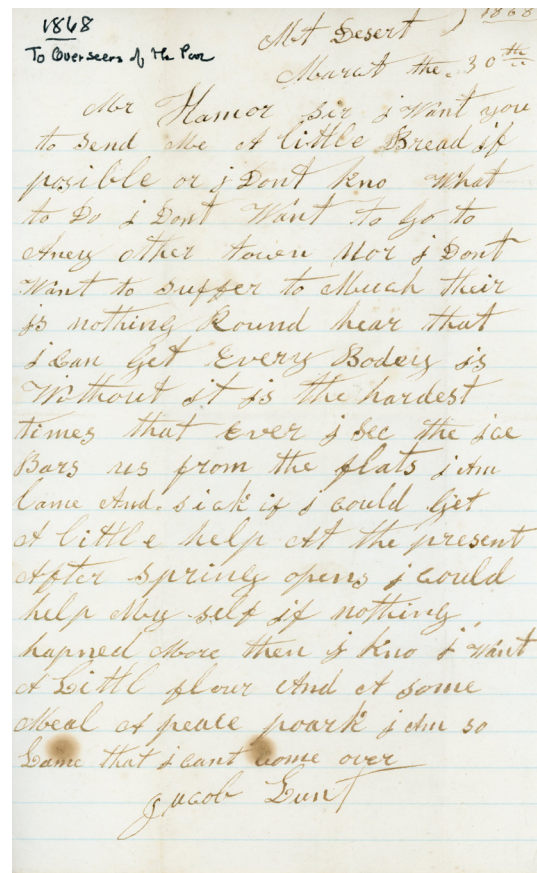 1868
To Overseers of the Poor
Mt Desert ) 1868
March the 30th
Mr Hamor sir i Want you
to Send Me A little Bread if
posible or i Dont kno What
to Do i Dont Want to Go to
Aney other town Nor i Dont
Want to suffer to Much their
is nothing Round hear that
i Can Get Every Bodey is
Without it is the hardest
times that Ever i see the ice
Bars us from the flats i Am
lame And sick if i Could Get
A little help At the present
After spring opens i Could
help My self if nothing
hapned More then i kno i Want
A Littl flour And A some
Meal A peace poark i Am so
Lame that i cant come over
Jacob Lunt